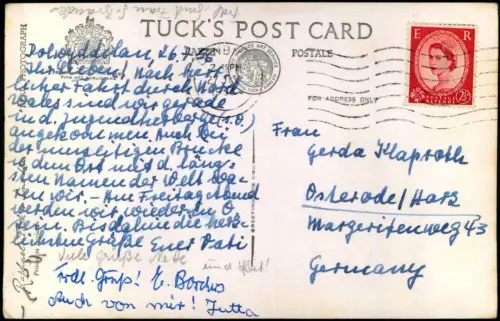 TUCK'S POST CARD
POSTALE
FOR ADDRESS ONLY
E R
2½
Ihr Lieben! Nach herr-
licher Fahrt durch Nord
Wales sind wir gerade
in d. Jugendherberge (s.o.)
angekommen. Auch bei
der Brücke
u. dem Ort mit d. läng-
sten Namen der Welt wa-
ren wir. - Am Freitagabend
werden wir wieder in O.
sein. Bis dahin die herz-
lichsten Grüße Euer Vati
Viele Grüße
Frdl. Gruß! E. Borchs
Auch von mir! Jutta
Frau
Gerda Klaproth
Osterode/Harz
Margeritenweg 43
Germany